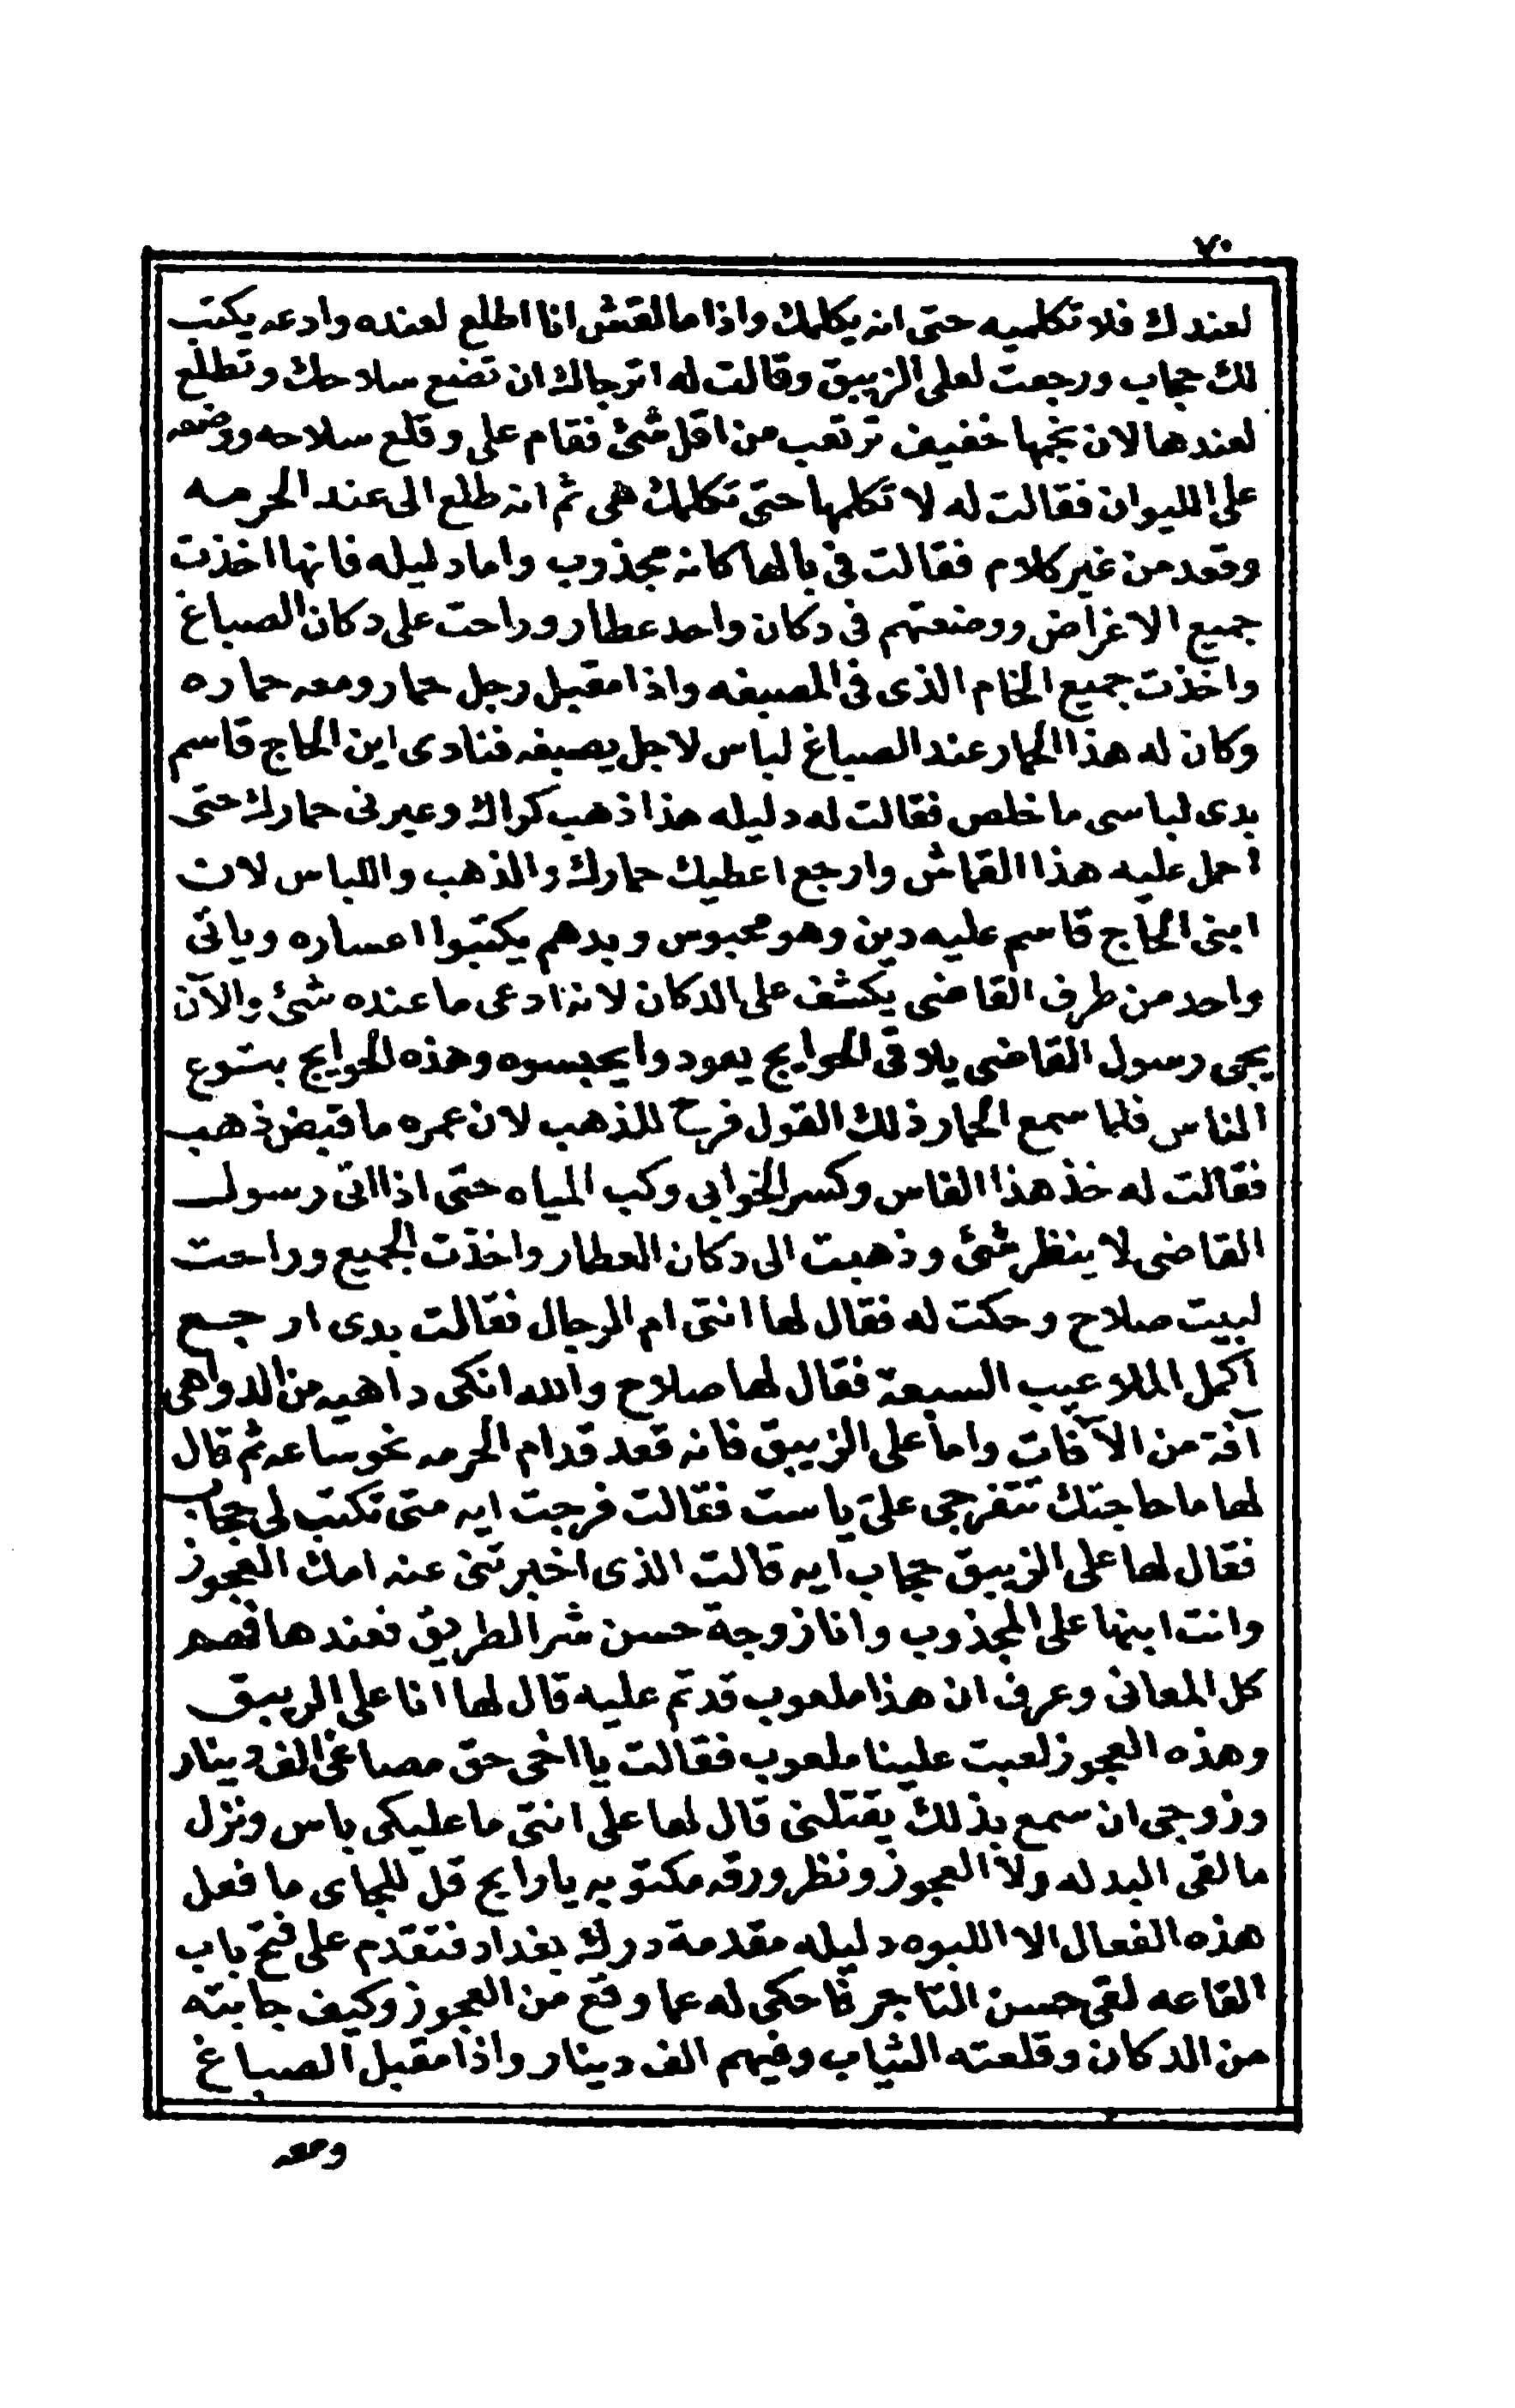 ٧٠
لعندك فلا تكلميه حتى انه يكلمك واذا ما لقتش انا اطلع لعنده وادعه يكتب
لك حجاب ورجعت لعلى الزيبق وقالت له اترجاك ان تضع سلاحك وتطلع
لعندها لان نجمها خفيف ترتعب من اقل شئ فقام على وقلع سلاحه ووضعه
على الليوان فقالت له لا تكلمها حتى تكلمك هى ثم انه طلع الى عند الحرمه
وقعد من غير كلام فقالت فى بالها كانه مجذوب واما دليله فانها اخذت
جميع الاغراض ووضعتهم فى دكان واحد عطار وراحت على دكان الصباغ
واخذت جميع الخام الذى فى المصبغه واذا مقبل رجل حمار ومعه حماره
وكان له هذا الحمار عند الصباغ لباس لاجل يصبغه فنادى اين الحاج قاسم
بدى لباسى ما خلص فقالت له دليله هذا ذهب كراك وعيرنى حمارك حتى
احمل عليه هذا القماش وارجع اعطيك حمارك والذهب واللباس لان
ابنى الحاج قاسم عليه دين وهو محبوس وبدهم يكتبوا اعساره وياتى
واحد من طرف القاضى يكشف على الدكان لانه ادعى ما عنده شئ والآن
يجى رسول القاضى يلاقى الحوايج يعودوا يحبسوه وهذه الحوايج بتوع
الناس فلما سمع الحمار ذلك القول فرح للذهب لان عمره ما قبض ذهب
فقالت له خذ هذا الفاس وكسر الخوابى وكب المياه حتى اذا اتى رسول
القاضى لا ينظر شئ وذهبت الى دكان العطار واخذت الجميع وراحت
لبيت صلاح وحكت له فقال لها انتى ام الرجال فقالت بدى ارجع
اكمل الملاعيب السبعة فقال لها صلاح والله انكى داهيه من الدواهى
آفة من الآفات واما على الزيبق فانه قعد قدام الحرمه نحو ساعه ثم قال
لها ما حاجتك تتفرجى علىّ يا ست فقالت فرجت ايه متى تكتب لى حجاب
فقال لها على الزيبق حجاب ايه قالت الذى اخبرتنى عنه امك العجوز
وانت ابنها على المجذوب وانا زوجة حسن شر الطريق فعندها فهم
كل المعانى وعرف ان هذا ملعوب قد تم عليه قال لها انا على الزيبق
وهذه العجوز لعبت علينا ملعوب فقالت يا اخى حق مصاغى الف دينار
وزوجى ان سمع بذلك يقتلنى قال لها على انتى ما عليكى باس ونزل
ما لقى البدله ولا العجوز ونظر ورقه مكتوبه يا رايح قل للجاى ما فعل
هذه الفعال الا اللبوه دليله مقدمة درك بغداد فتقدم على فتح باب
القاعه لقى حسن التاجر فاحكى له عما وقع من العجوز وكيف جابته
من الدكان وقلعته الثياب وفيهم الف دينار واذا مقبل الصباغ
ومعه